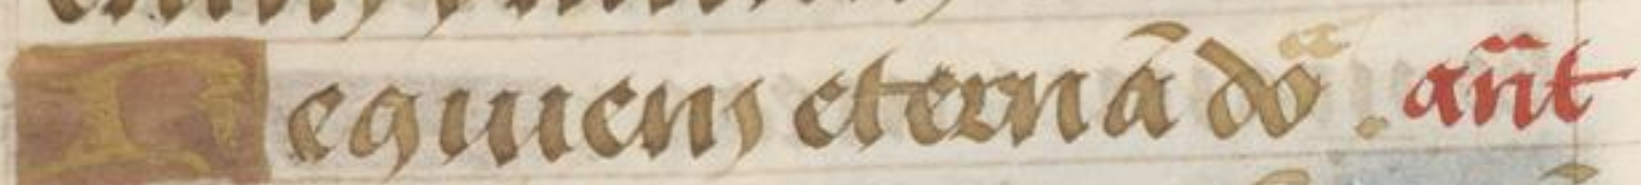 Requiem eternā dō . an̄t